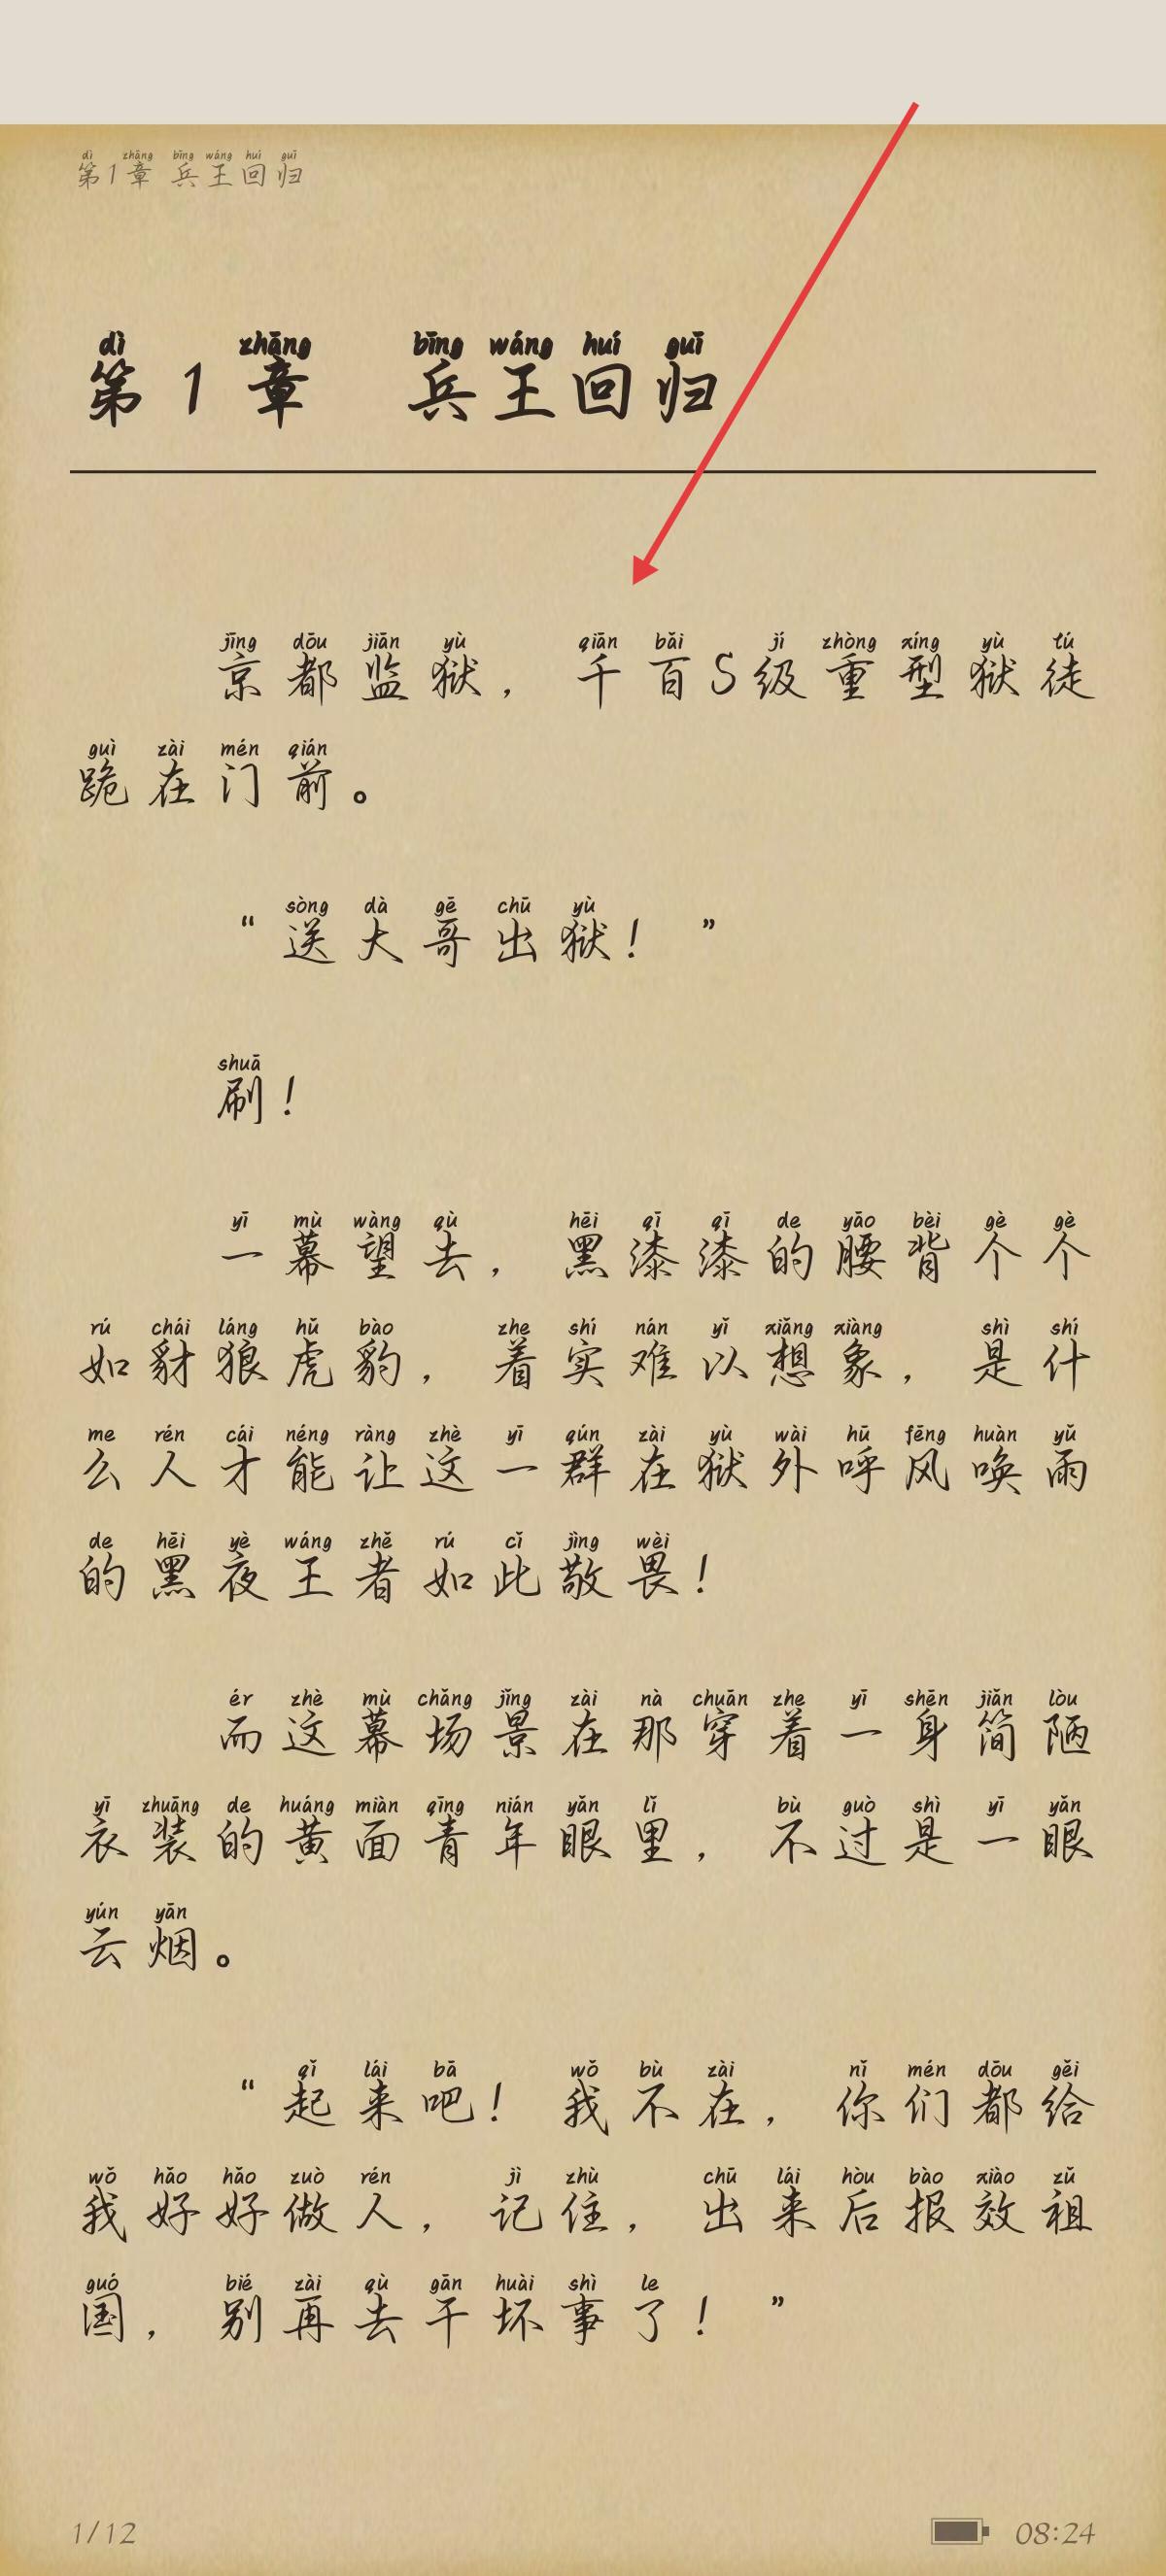 dì zhāng bīng wáng huí guī
第1章 兵王回归
dì zhāng bīng wáng huí guī
第1章 兵王回归
jīng dōu jiān yù qiān bǎi jí zhòng xíng yù tú
京都监狱，千百S级重型狱徒
guì zài mén qián
跪在门前。
sòng dà gē chū yù
“送大哥出狱！”
shuā
刷！
yī mù wàng qù hēi qī qī de yāo bèi gè gè
一幕望去，黑漆漆的腰背个个
rú chái láng hǔ bào zhe shí nán yǐ xiǎng xiàng shì shí
如豺狼虎豹，着实难以想象，是什
me rén cái néng ràng zhè yī qún zài yù wài hū fēng huàn yǔ
么人才能让这一群在狱外呼风唤雨
de hēi yè wáng zhě rú cǐ jìng wèi
的黑夜王者如此敬畏！
ér zhè mù chǎng jǐng zài nà chuān zhe yī shēn jiǎn lòu
而这幕场景在那穿着一身简陋
yī zhuāng de huáng miàn qīng nián yǎn lǐ bù guò shì yī yǎn
衣装的黄面青年眼里，不过是一眼
yún yān
云烟。
qǐ lái bā wǒ bù zài nǐ mén dōu gěi
“起来吧！我不在，你们都给
wǒ hǎo hǎo zuò rén jì zhù chū lái hòu bào xiào zǔ
我好好做人，记住，出来后报效祖
guó bié zài qù gān huài shì le
国，别再去干坏事了！”
1/12
08:24